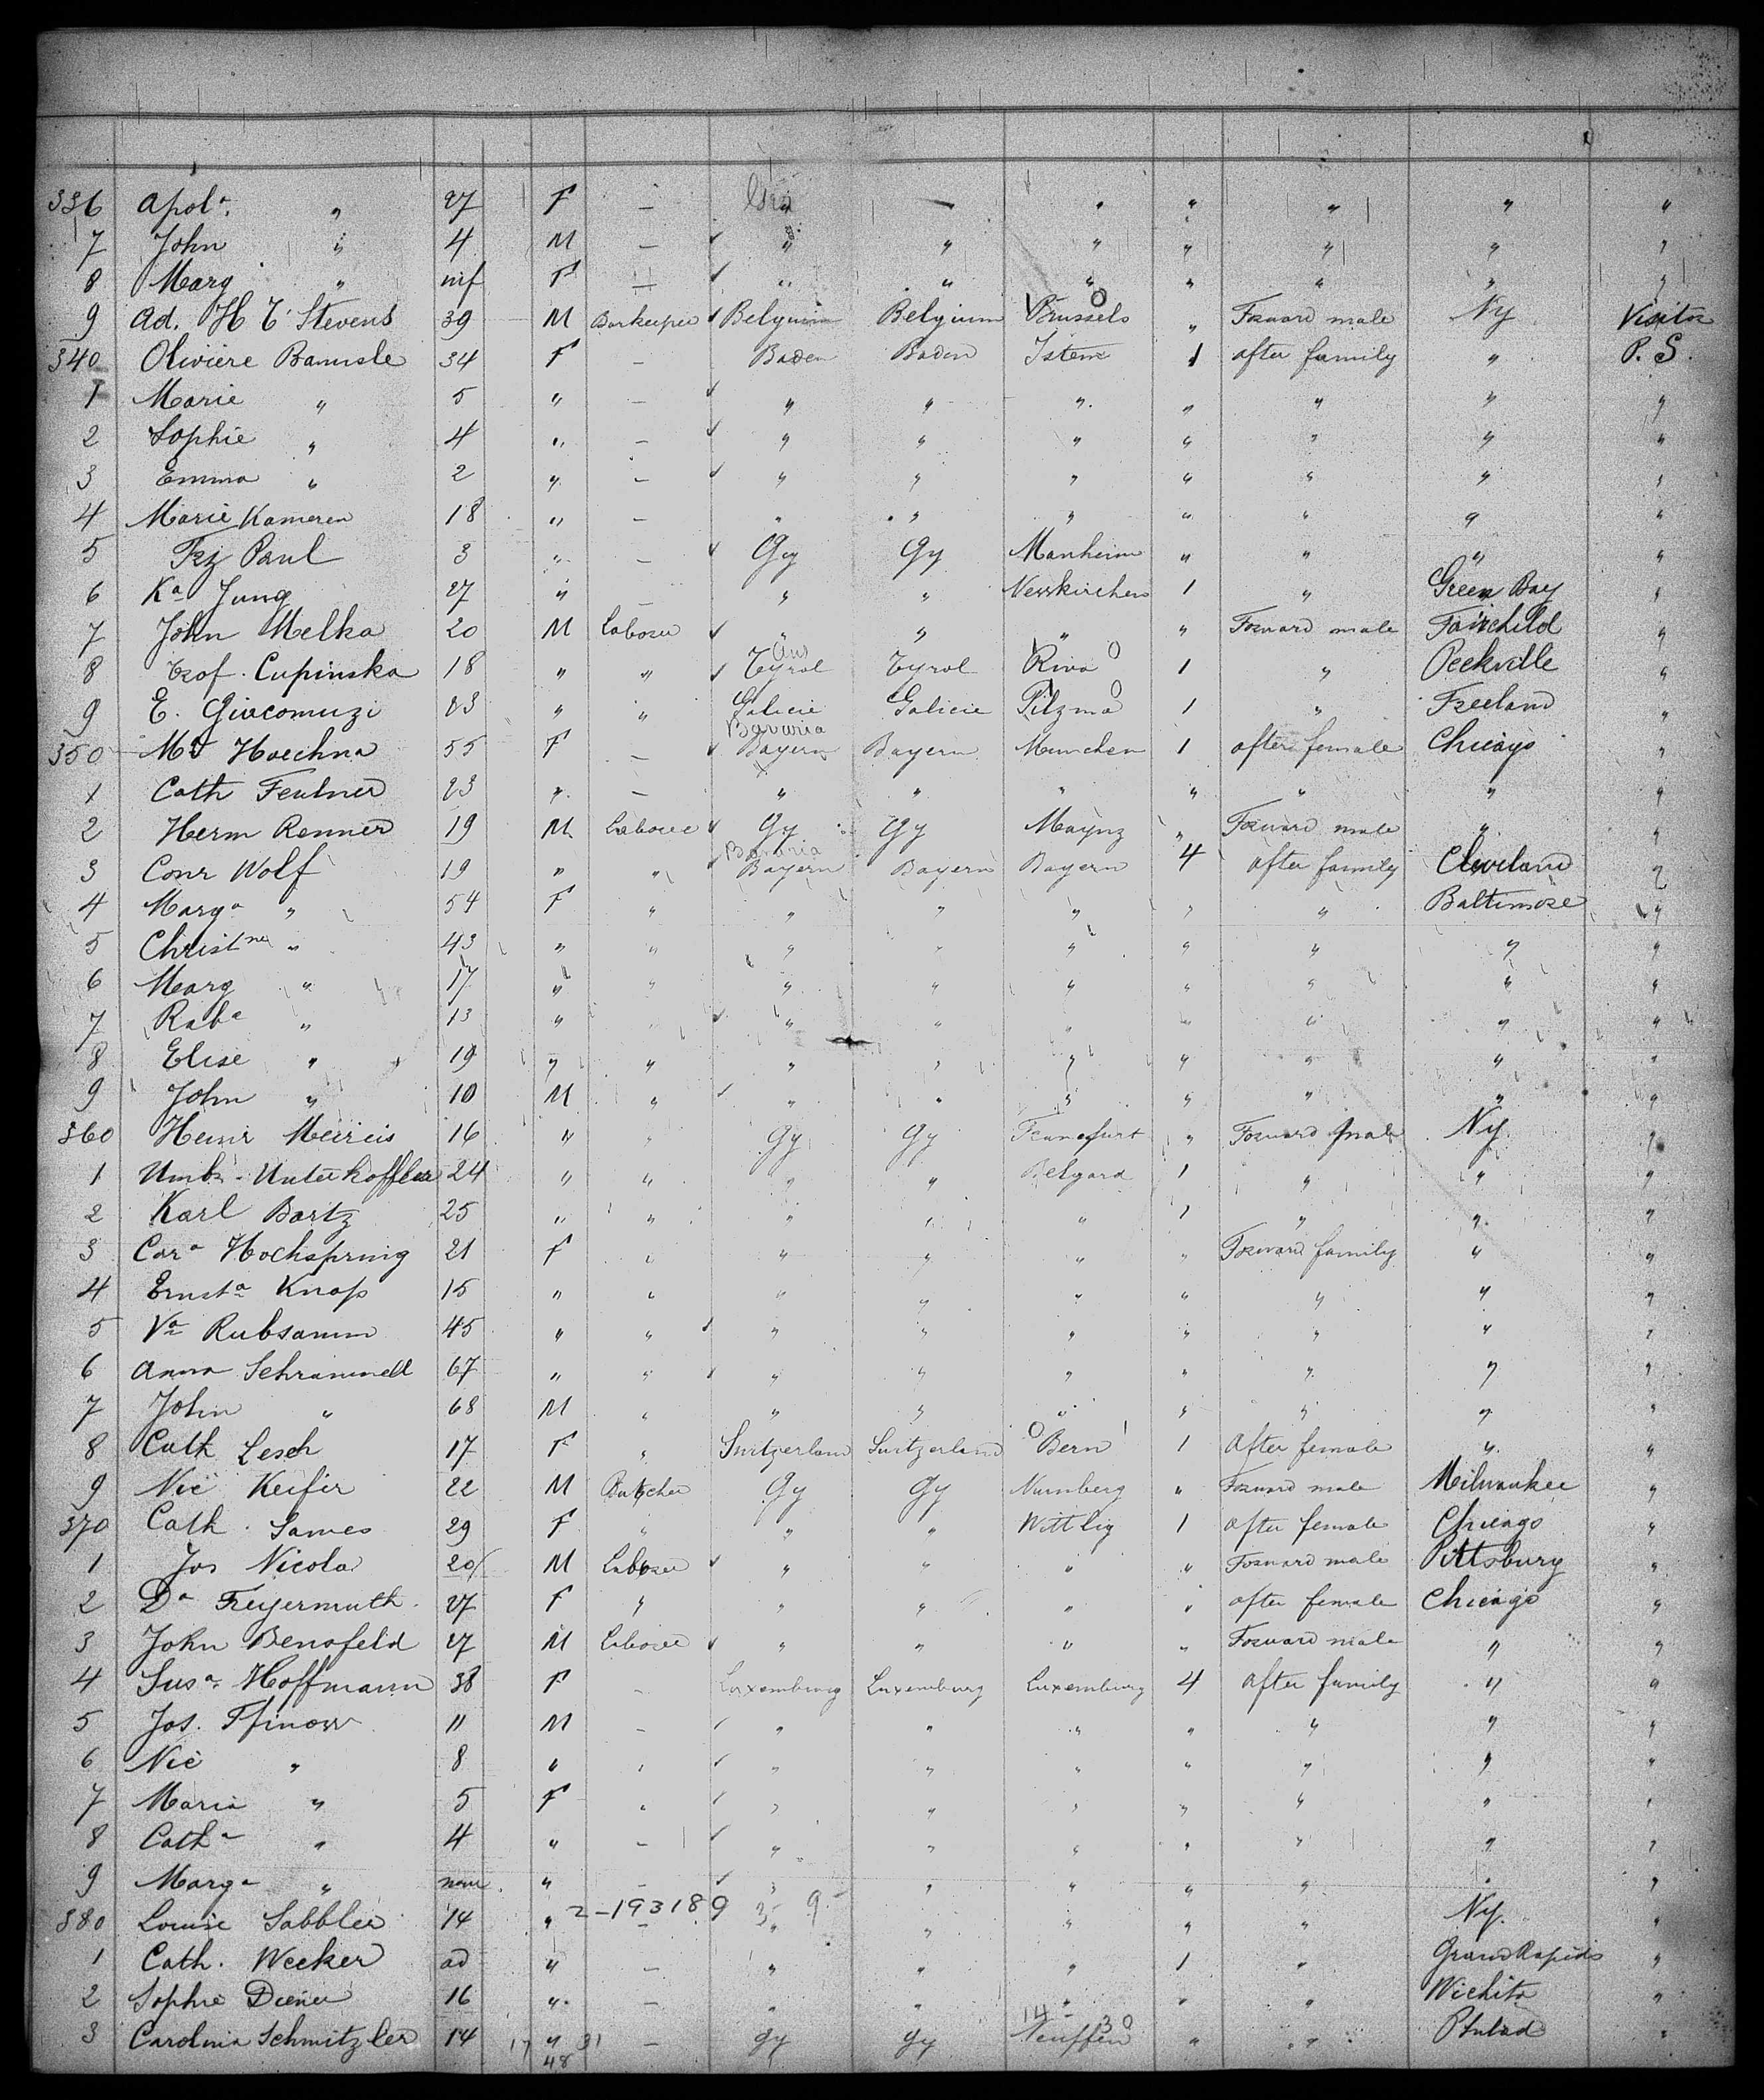 336 Apolª " 27 F — " — " " " " "
7 John " 4 M — " " " " " " "
8 Marg " inf F — " " " " " " "
9 Ad. H T Stevens 39 M Barkeeper Belgium Belgium Brussels " Forward male Ny Visitor
340 Oliviere 34 F — Baden Baden 1 after family " P. S.
1 Marie " 5 " — " " " " " " "
2 Sophie " 4 " — " " " " " " "
3 Emma " 2 " — " " " " " " "
4 Marie Kameren 18 " — " " " " " " "
5 Paul 3 " — Gy Gy Manheim " " " "
6 Kª Jung 27 " — " " 1 " Green Bay "
7 John Melka 20 M Laborer " " " " Forward male Fairchild "
8 Cupinska 18 " " Aus Tyrol Tyrol Riva 1 " Peckville "
9 E. Giacomuzi 23 " " Galicie Galicie Pilzma 1 " Freeland "
Bavaria
350 Hoechna 55 F — Bayern Bayern Munchen 1 after female Chicago "
1 Cath Feulner 23 " — " " " " " " "
2 Herm Renner 19 M Laborer Gy Gy Maynz " Forward male " "
Bavaria
3 Conr Wolf 19 " " Bayern Bayern Bayern 4 after family Cleveland "
4 Margª " 54 F " " " " " " Baltimore "
5 Christne " 43 " " " " " " " " "
6 Marg " 17 " " " " " " " " "
7 Babª " 13 " " " " " " " " "
8 Elise " 19 " " " " " " " " "
9 John " 10 M " " " " " " " "
360 Heinr 16 " " Gy Gy Francfurt " Forward male Ny "
1 Unterkoffler 24 " " " " Belgard 1 " " "
2 Karl Bartz 25 " " " " " 1 " " "
3 Carª Hochspring 21 F " " " " " Forward family " "
4 Ernstª Knop 15 " " " " " " " " "
5 Vª Rubsamm 45 " " " " " " " " "
6 Anna Schrammell 67 " " " " " " " " "
7 John " 68 M " " " " " " " "
8 Cath Lesch 17 F " Switzerland Switzerland Bern 1 After female " "
9 Nic Keifer 22 M Butcher Gy Gy Nurnberg " Forward male Milwaukee "
370 Cath. James 29 F " " " Wittlig 1 after female Chicago "
1 Jos Nicola 20 M Laborer " " " " Forward male Pittsburg "
2 Dª Freyermuth 27 F " " " " " after female Chicago "
3 John Benofeld 27 M Laborer " " " " Forward male " "
4 Susª Hoffmann 38 F — Luxemburg Luxemburg Luxemburg 4 after family " "
5 Jos. 11 M — " " " " " " "
6 Nic " 8 " " " " " " " " "
7 Maria " 5 F " " " " " " " "
8 Cathª " 4 " — " " " " " " "
9 Margª " " — " " " " " " "
2–193189
380 Louise Sabbler 14 " — " " " " " Ny. "
1 Cath. Wecker ad " — " " " 1 " Grand Rapids "
2 Sophie Diener 16 " — " " " " " Wichita "
14 – 30
3 Carolina Schmitzler 14 17 " 31 — Gy Gy Neuffen " " Philad "
48